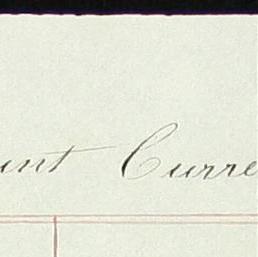 unt Curre